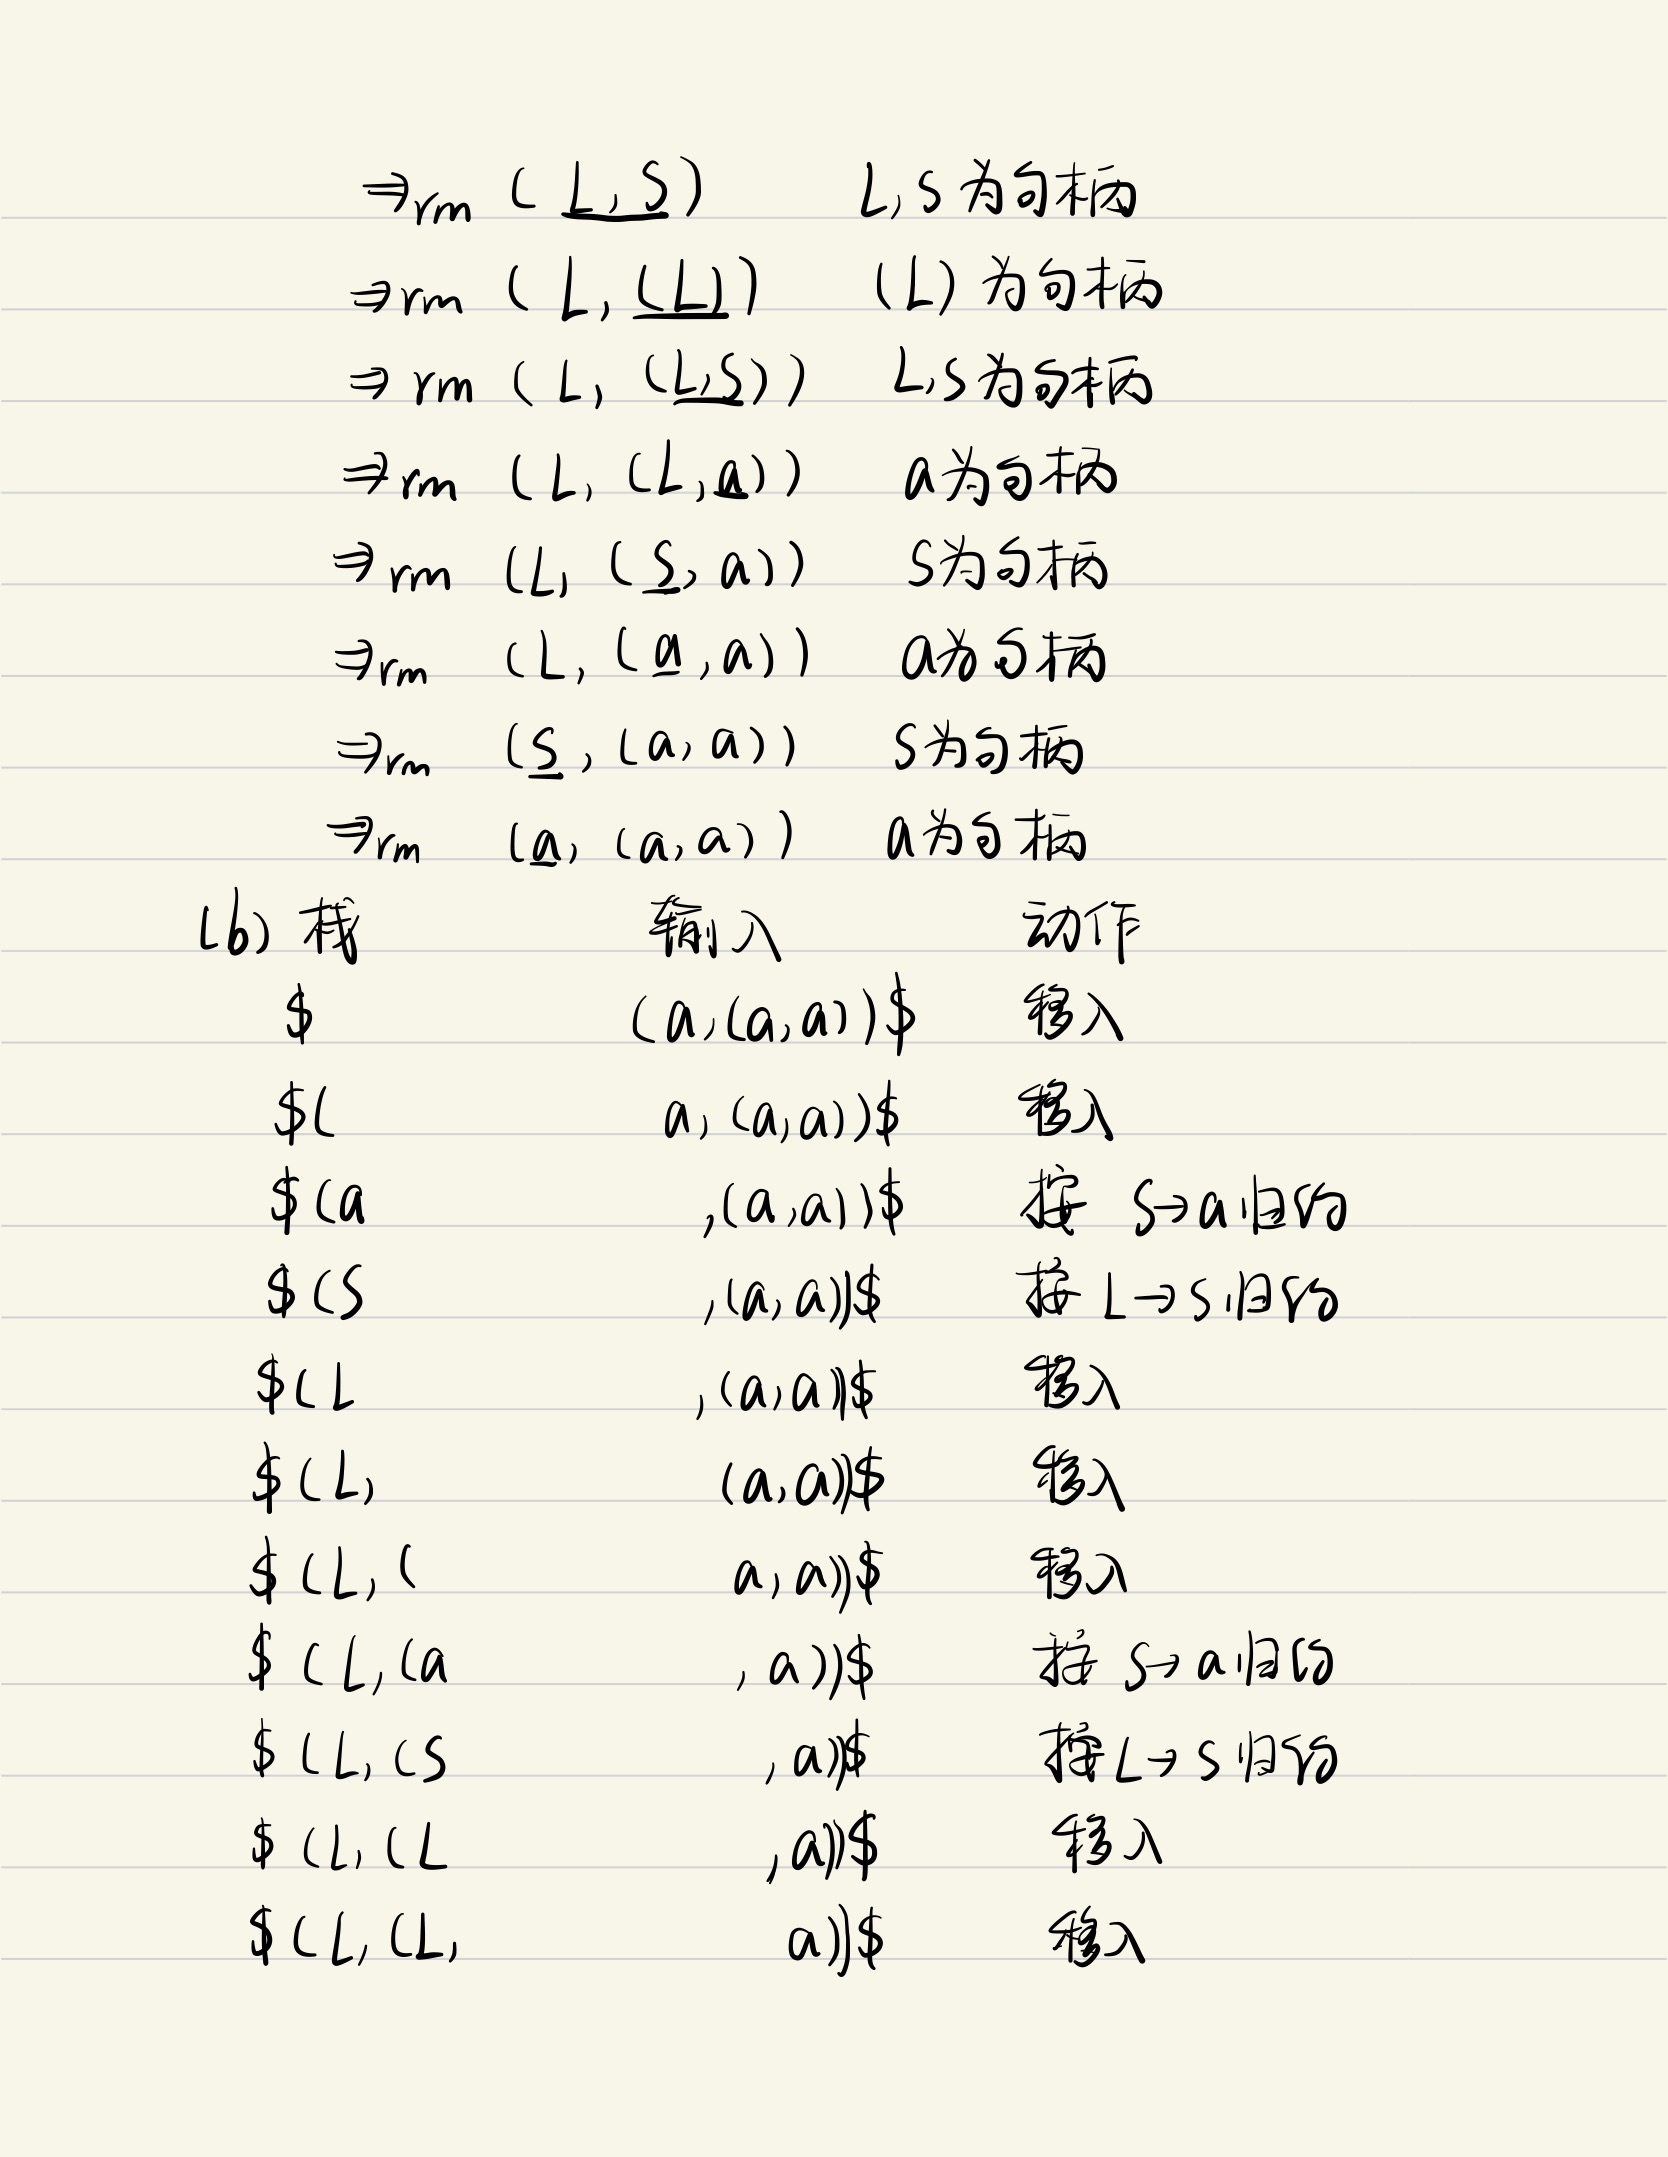 ⇒rm ( L, S ) L, S 为句柄
⇒rm ( L, (L) ) (L) 为句柄
⇒rm ( L, (L,S) ) L,S为句柄
⇒rm (L, (L,a)) a为句柄
⇒rm (L, (S, a)) S为句柄
⇒rm (L, (a, a)) a为句柄
⇒rm (S, (a, a)) S为句柄
⇒rm (a, (a, a)) a为句柄
(b) 栈 输入 动作
$ (a,(a,a))$ 移入
$( a, (a,a))$ 移入
$(a ,(a,a))$ 按 S→a归约
$(S ,(a,a))$ 按 L→S归约
$(L ,(a,a))$ 移入
$(L, (a,a))$ 移入
$(L,( a,a))$ 移入
$(L,(a ,a))$ 按 S→a归约
$(L,(S ,a))$ 按L→S归约
$(L,(L ,a))$ 移入
$(L,(L, a))$ 移入